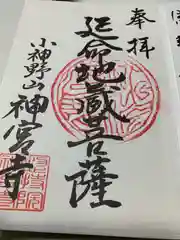 奉拝
延命地蔵菩薩
小神野山
神宮寺